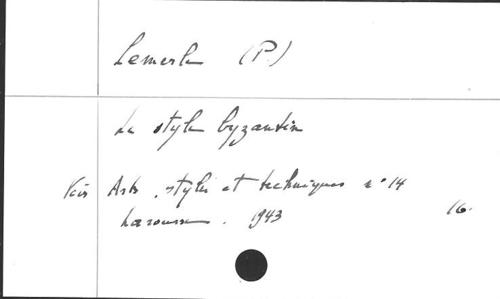 Lemerle (P.)
Le style byzantin
Voir Arts, styles et techniques n° 14
Larousse. 1943 16.